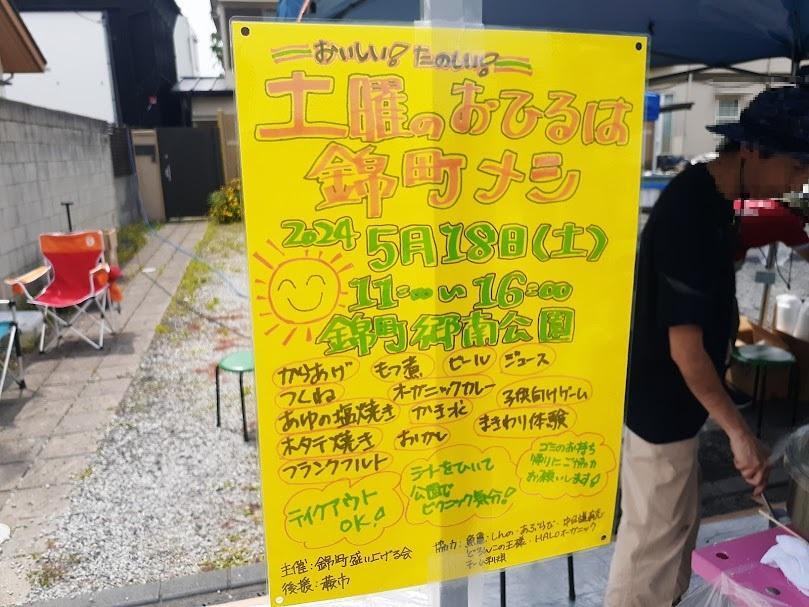 おいしい! たのしい!
土曜のおひるは
錦町メシ
2024 5月18日(土)
11:00〜16:00
錦町郷南公園
からあげ もつ煮 ビール ジュース
つくね オーガニックカレー 子供向けゲーム
あゆの塩焼き かき氷 まきわり体験
ホタテ焼き おかし
フランクフルト
ゴミのお持ち
帰りにご協力
お願いします!
シートをひいて
公園で
ピクニック気分!
テイクアウト
OK!
主催:錦町盛り上げる会
後援:蕨市
協力:
HALOオーガニック